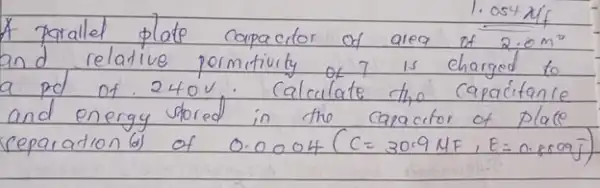 1.054 Mf
A parallel plate capacitor of area of 2.0m²
and relative permitivity of 7 is charged to
a pd of 240V. Calculate the capacitance
and energy stored in the capacitor of plate
separation (d) of 0.0004 (C= 30.9 MF, E= 0.8509J)